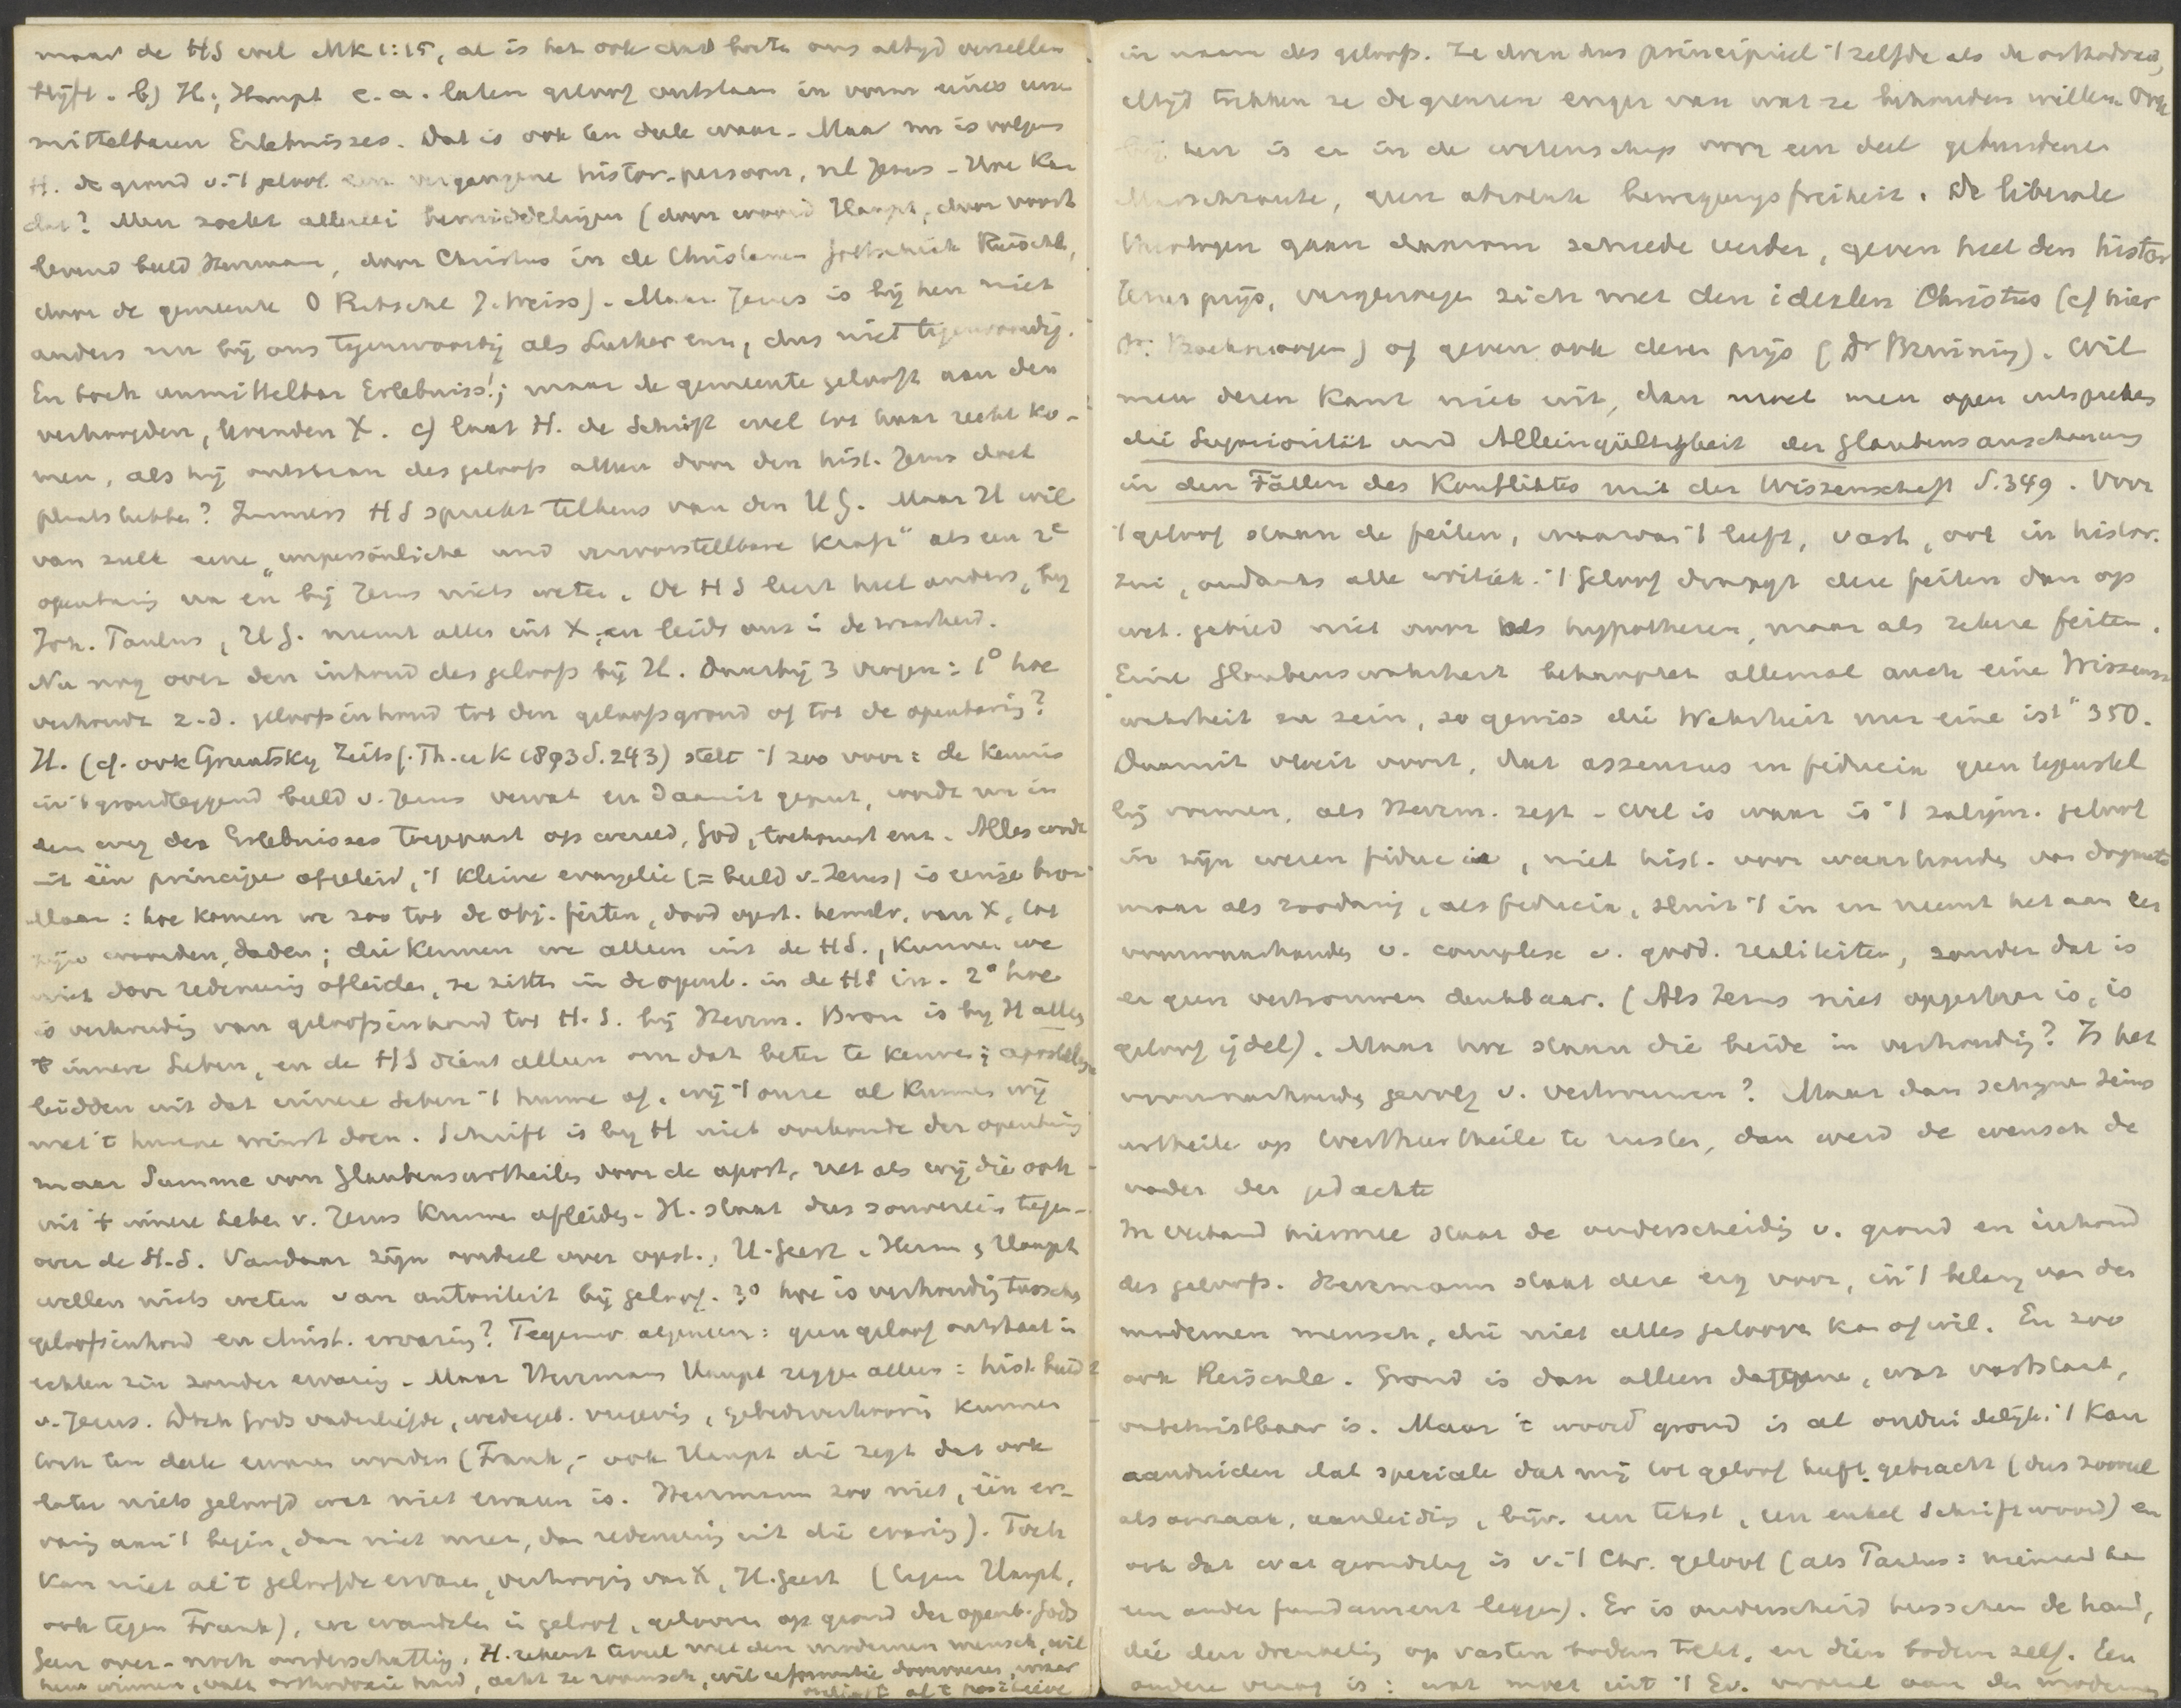 maar de HS wel Mk 1:15, al is het ook dat boete ons altijd verzellen
blijft. b) H., Haupt e.a. laten geloof ontstaan in vorm eines un-
mittelbaren Erlebnisses. Dat is ook ten deele waar. Maar nu is volgens
H. de grond v. 't geloof een vergangene histor. persoon, nl Jezus. Hoe kan
dat? Men zoekt allerlei bemiddelingen (door woord Haupt, door voort
levend beeld Herrmann, door Christus in de Christenen Gottschick Reischle,
door de gemeente O Ritschl J. Weiss). Maar Jezus is bij hen niet
anders nu bij ons tegenwoordig als Luther enz, dus niet tegenwoordig.
En toch unmittelbar Erlebniss!; maar de gemeente gelooft aan den
verhoogden, levenden X. c) laat H. de Schrift wel tot haar recht ko-
men, als hij ontstaan des geloofs alleen door den hist. Jezus doet
plaats hebben? Immers HS spreekt telkens van den HG. Maar H wil
van zulk eene "unpersönliche und unvorstellbare Kraft" als een 2e
openbaring na en bij Jezus niets weten. De HS leert heel anders, bij
Joh. Paulus, HG. neemt alles uit X, en leidt ons in de waarheid.
Nu nog over den inhoud des geloofs bij H. Daarbij 3 vragen: 1° hoe
verhoudt z.d. geloofsinhoud tot den geloofsgrond of tot de openbaring?
H. (cf. ook Zeits f. Th. u K 1893 S. 243) stelt 't zoo voor: de kennis
in 't grondleggend beeld v. Jezus vervat en daarmit geput, wordt nu in
den weg des Erlebnisses toegepast op wereld, God, toekomst enz. Alles wordt
uit één principe afgeleid, 't kleine evangelie (= beeld v. Jezus) is eenige bron
Maar: hoe komen we zoo tot de obj. feiten, dood opst. hemelv. van X, tot
zijn woorden, daden; die kennen we alleen uit de HS., kunnen we
niet door redenering afleiden, ze zitten in de openb. in de HS in. 2° hoe
is verhouding van geloofsinhoud tot H.S. bij Herrm. Bron is bij H alleen
't innere Leben, en de HS dient alleen om dat beter te kennen; apostelen
leidden uit dat innere Leben 't hunne af, wij 't onze al kunnen wij
met 't hunne winst doen. Schrift is bij H niet oorkonde der openbaring
maar Summe von Glaubensurtheilen door de apost., net als wij die ook
uit 't innere Leben v. Jezus kunnen afleiden. H. staat dus souverein tegen-
over de H.S. Vandaar zijn oordeel over opst., H. Geest. Herrm. & Haupt
willen niets weten van autoriteit bij geloof. 3° hoe is verhouding tusschen
geloofsinhoud en christ. ervaring? algemeen: geen geloof ontstaat in
echten zin zonder ervaring. Maar Herrmann Haupt zeggen alleen: hist. beeld
v. Jezus. Doch Gods vaderliefde, wedergeb. vergeving, gebedsverhooring kunnen
toch ten deele ervaren worden (Frank, ook Haupt die zegt dat ook
later niets geloofd wat niet ervaren is. Herrmann zoo niet, één er-
varing aan 't begin, dan niet meer, dan redenering uit die ervaring). Toch
kan niet al 't geloofde ervaren, verhooging van X, H. Geest (tegen Haupt,
ook tegen Frank), we wandelen in geloof, gelooven op grond der openb. Gods
Geen over- noch onderschatting. H. rekent teveel met den modernen mensch, wil
hem winnen, valt orthodoxie hard, acht ze roomsch, wil reformatie doorvoeren, maar
al 't positieve
in naam des geloofs. Ze doen dus principieel 't zelfde als de orthodoxen,
altijd trekken ze de grenzen enger van wat ze behouden willen. Ook
bij hen is er in de wetenschap voor een deel gebundene
Marschroute, geen absolute bewegungsfreiheit. De liberale
theologen gaan daarom schrede verder, geven heel den histor
Jezus prijs, vergenoegen zich met den idealen Christus (cf hier
Dr. ) of geven ook dezen prijs (Dr Bruining). Wil
men dezen kant niet uit, dan moet men open uitspreken
die Superiorität und Alleingültigkeit der Glaubensanschauung
in den Fällen des Konfliktes mit der Wissenschaft S. 349. Voor
't geloof staan de feiten, waarvan 't leeft, vast, ook in histor.
zin, ondanks alle critiek. 't Geloof draagt deze feiten dan op
wet. gebied niet voor als hypothesen, maar als zekere feiten.
"Eine Glaubenswahrheit behauptet allemal auch eine Wissens-
wahrheit zu sein, so gewiss die Wahrheit nur eine ist" 350.
Daarmit vloeit voort, dat assensus en fiducia geen tegenstel
ling vormen, als Herrm. zegt. Wel is waar is 't zaligm. geloof
in zijn wezen fiducia, niet hist. voor waar houden van dogmata
maar als zoodanig, als fiducia, sluit 't in en neemt het aan een
voorwaarhouden v. complex v. godd. realiteiten, zonder dat is
er geen vertrouwen denkbaar. (Als Jezus niet opgestaan is, is
geloof ijdel). Maar hoe staan die beide in verhouding? Is het
voorwaarhouden gevolg v. vertrouwen? Maar dan schijnt Seins
urtheile op Werthurtheile te rusten, dan werd de wensch de
vader der gedachte
In verband hiermee staat de onderscheiding v. grond en inhoud
des geloofs. Herrmann staat deze erg voor, in 't belang van den
modernen mensch, die niet alles gelooven kan of wil. En zoo
ook Reischle. Grond is dan alleen datgene, wat vaststaat,
onbetwistbaar is. Maar 't woord grond is al onduidelijk; 't kan
aanduiden dat speciale dat mij tot geloof heeft gebracht (dus zooveel
als oorzaak, aanleiding, bijv. een tekst, een enkel Schriftwoord) en
ook dat wat grondslag is v. 't Chr. geloof (als Paulus: niemand kan
een ander fundament leggen). Er is onderscheid tusschen de hand,
die den drenkeling op vasten bodem trekt, en dien bodem zelf. Een
andere vraag is: wat moet uit 't Ev. vooral aan de moderne